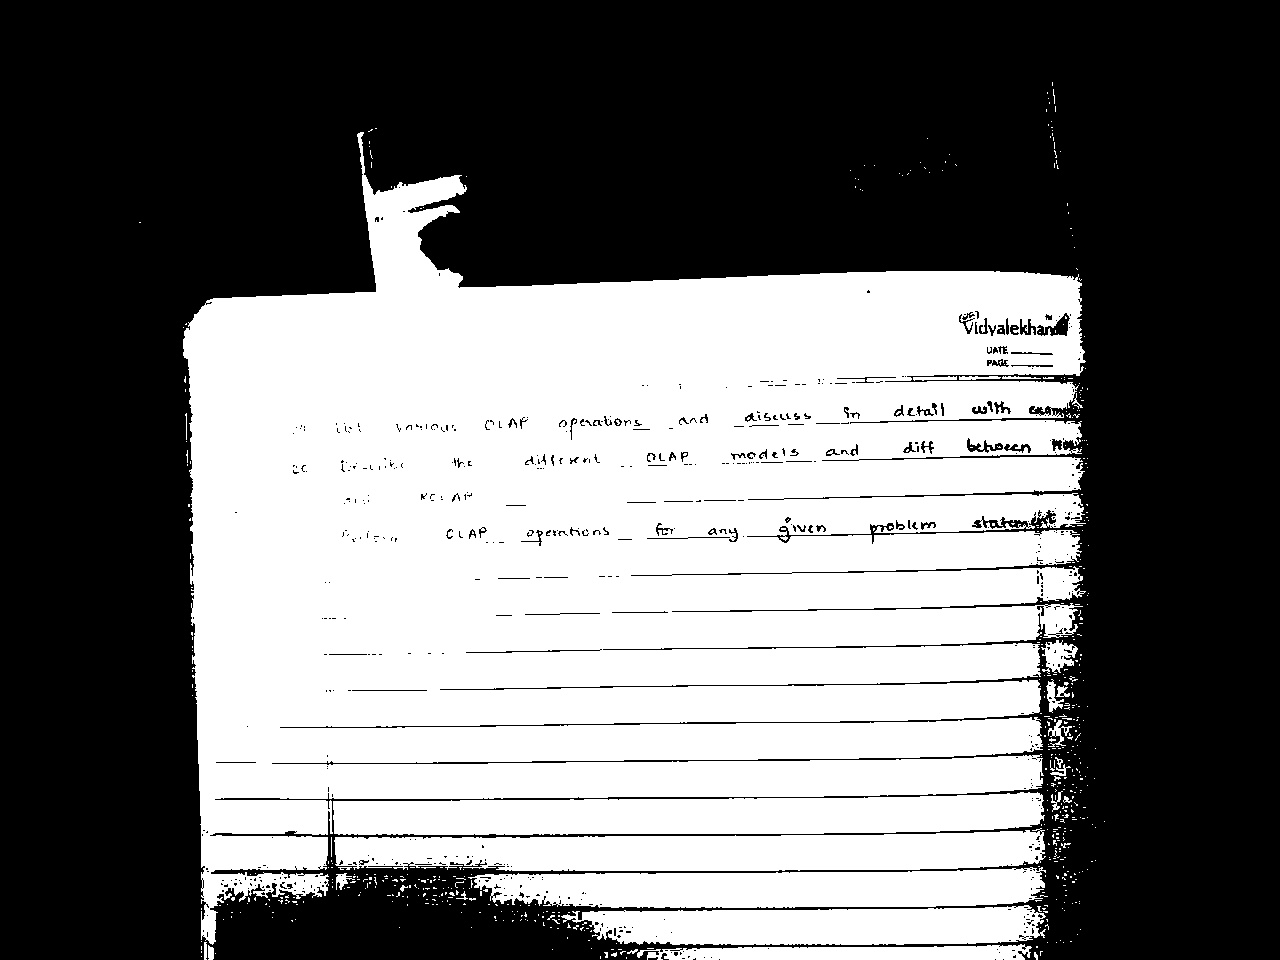 Vidyalekhan
DATE
PAGE
List various OLAP operations and discuss in detail with
20 Describe the different OLAP models and diff between
and ROLAP
Perform OLAP operations for any given problem statement